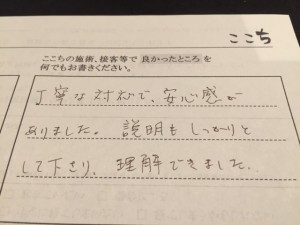 ここち
ここちの施術、接客等で良かったところを
何でもお書きください。
丁寧な対応で、安心感が
ありました。説明もしっかりと
して下さり、理解できました。